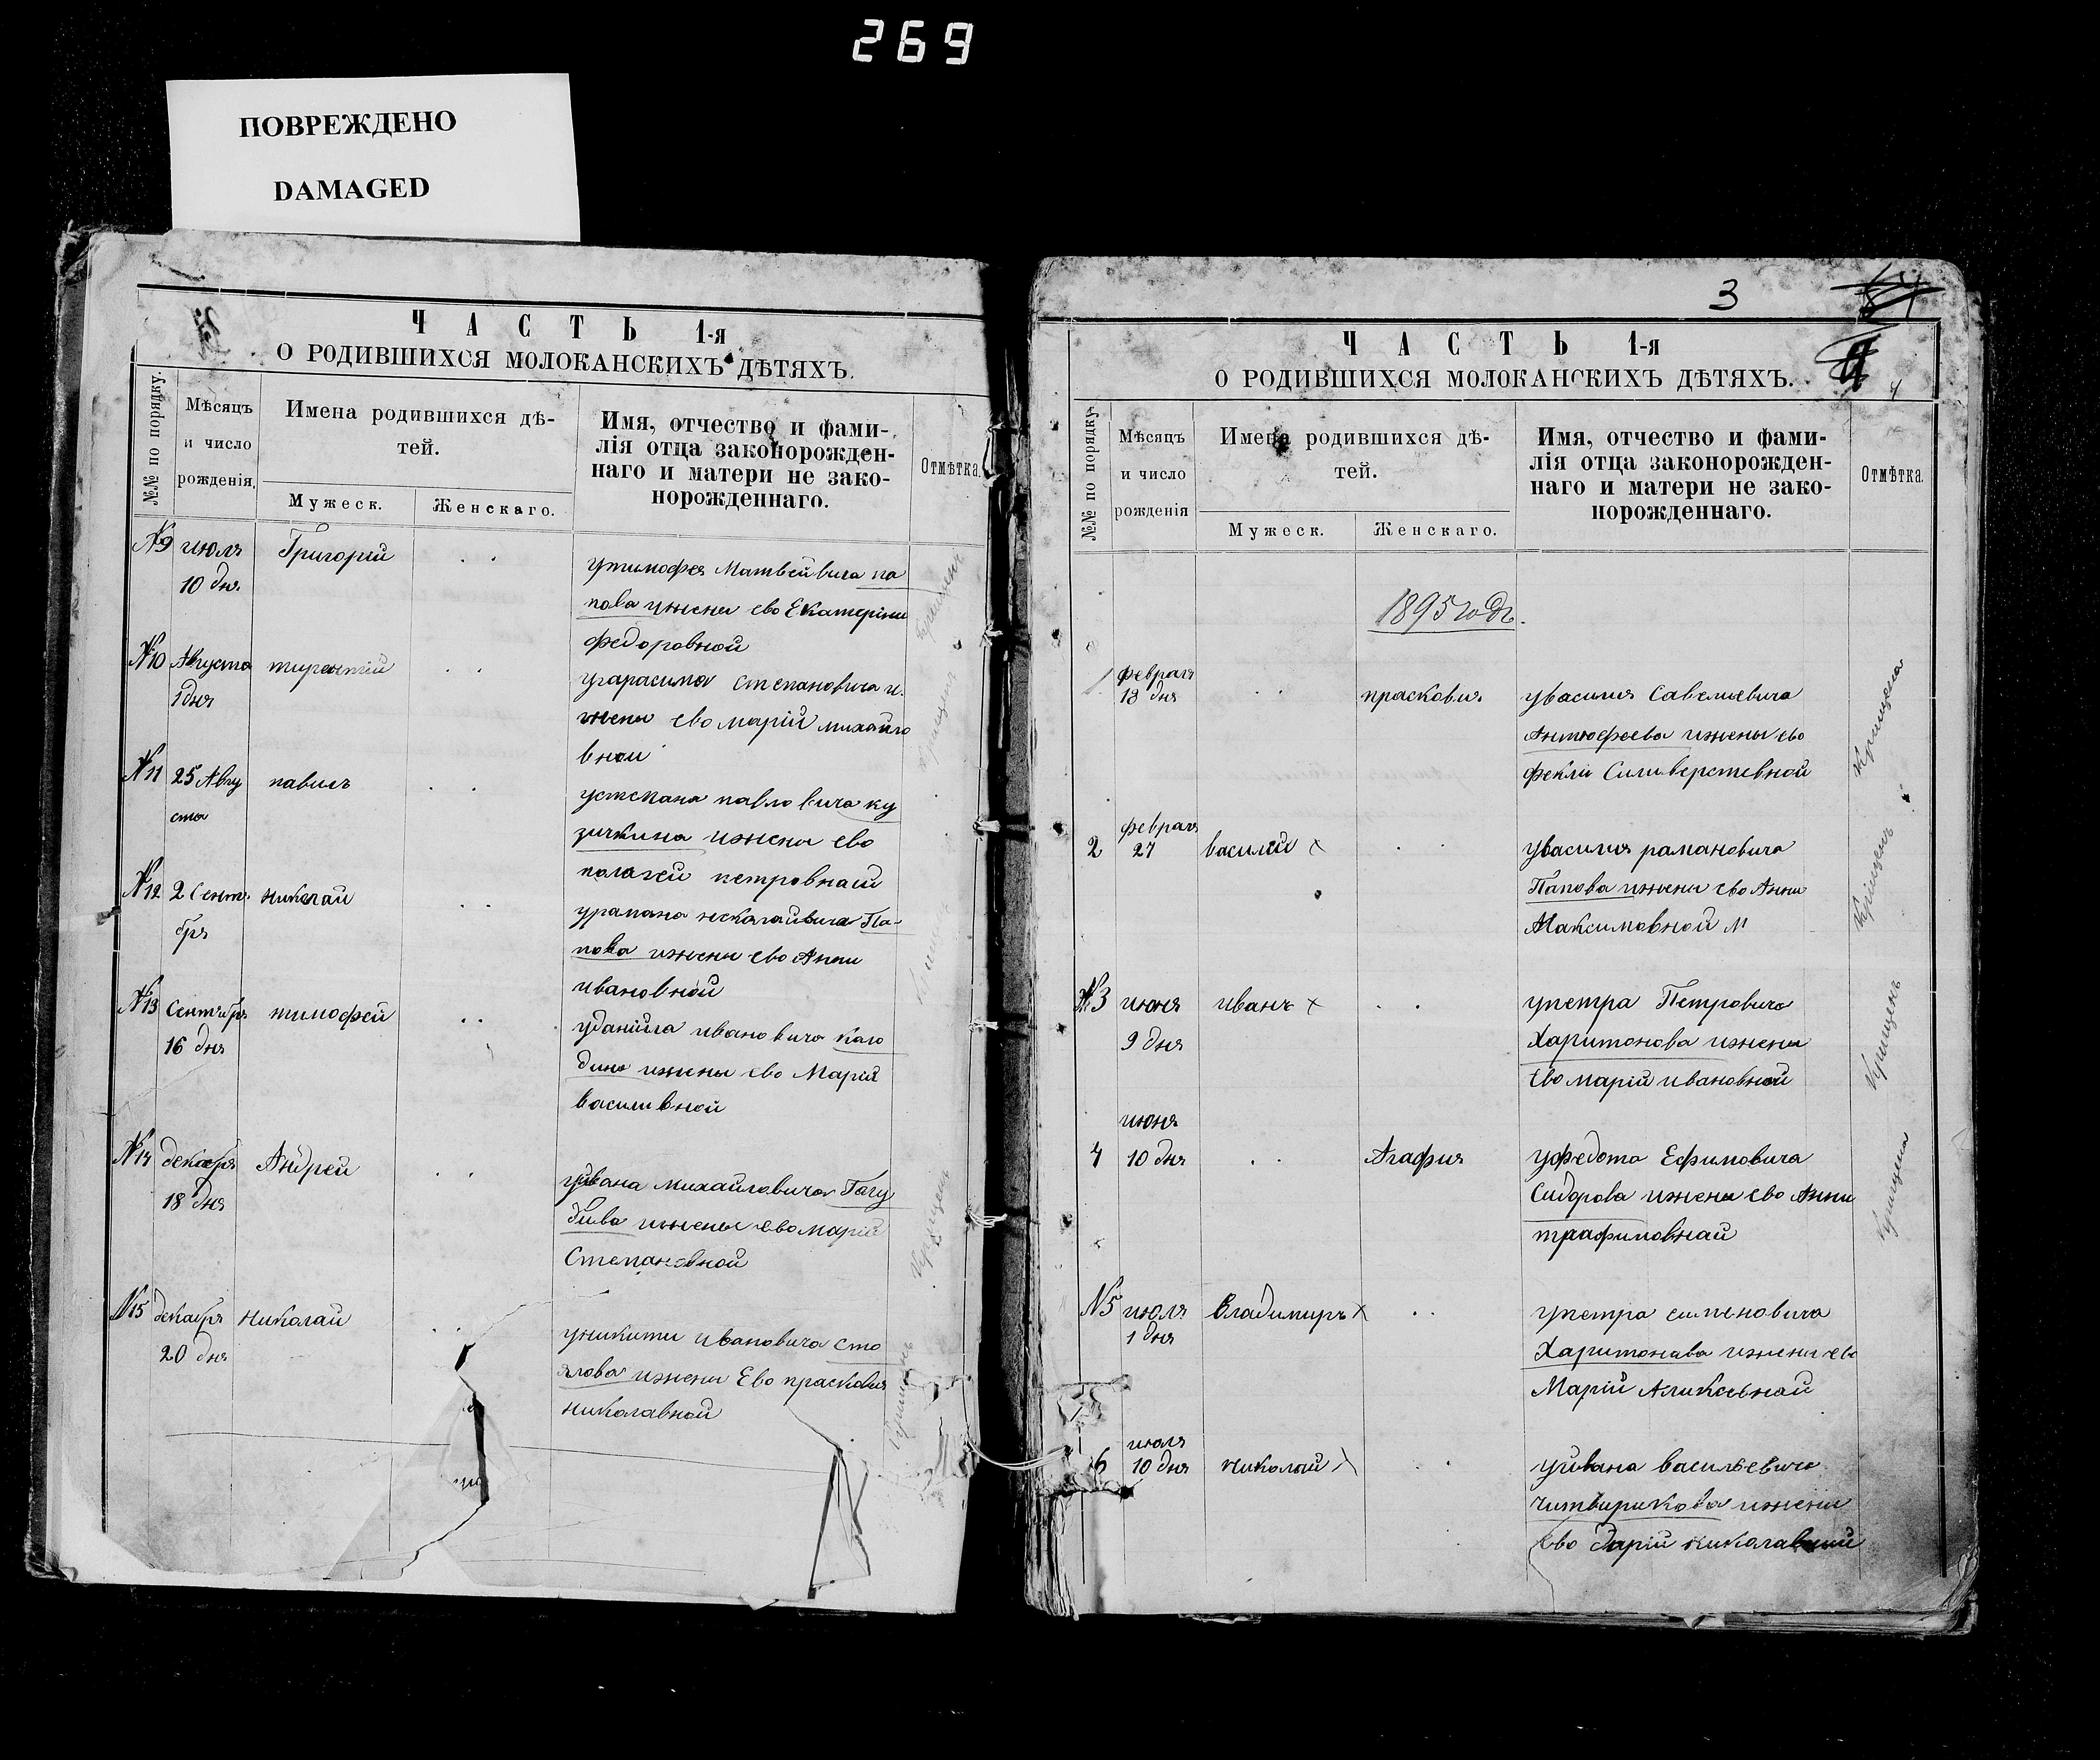 269
ПОВРЕЖДЕНО
DAMAGED
ЧАСТЬ 1-я
О РОДИВШИХСЯ МОЛОКАНСКИХЪ ДѢТЯХЪ.
№№ по порядку.
Мѣсяцъ
и число
рожденія.
Имена родившихся дѣ-
тей.
Мужеск.
Женскаго.
Имя, отчество и фами-
лія отца законорожден-
наго и матери не зако-
норожденнаго.
Отмѣтка.
№9 июля Григорий
10 дня.
утимофея Матвейвича па
пова ижены ево Екатерины
федоровной
№10 Августа тирентий
1 дня
угарасима Степановича и
жены ево марий михайло
вной
№11 25 Авгу павилъ
ста
устепана павловича ку
зичкина ижены ево
палагей петровнай
№12 2 Сент. николай
бря
урамана николайвича Па-
пова ижены ево Анны
ивановной
№13 Сентебря тимофей
16 дня
уданийла ивановича кало
дина ижены ево Марий
василивной
№14 декабря Андрей
18 дня
уйвана михайловича Пагу
бива ижены ево марий
Степановной
крищенъ
№15 декабря николай
20 дня
уникиты ивановича сто
ялова ижены Ево прасковия
николавной
3
4
ЧАСТЬ 1-я
О РОДИВШИХСЯ МОЛОКАНСКИХЪ ДѢТЯХЪ.
№№ по порядку
Мѣсяцъ
и число
рожденія
Имена родившихся дѣ-
тей.
Мужеск.
Женскаго.
Имя, отчество и фами-
лія отца законорожден-
наго и матери не зако-
норожденнаго.
Отмѣтка.
1895 годъ.
1 февраля
13 дня прасковия
увасилия Савельевича
Антюфеева ижены ево
феклы Силиверстевной
Крищена
февраля
2 27 василий x
увасилия рамановича
Папова ижены ево Анны
Максимовной М
Крищенъ
№3 июня иванъ x
9 дня
упетра Петровича
Харитонова ижены
Ево марий ивановной
Крищенъ
июня
4 10 дня Агафия
уфедота Ефимовича
Сидорова ижены ево Анны
трафимовнай
Крищена
№5 июля Владимиръ x
1 дня
упетра сименовича
Харитонава ижены ево
Марий Аликсевнай
июля
6 10 дня николай x
уйвана васильевича
Читвирикова ижены
Ево дарий николавной